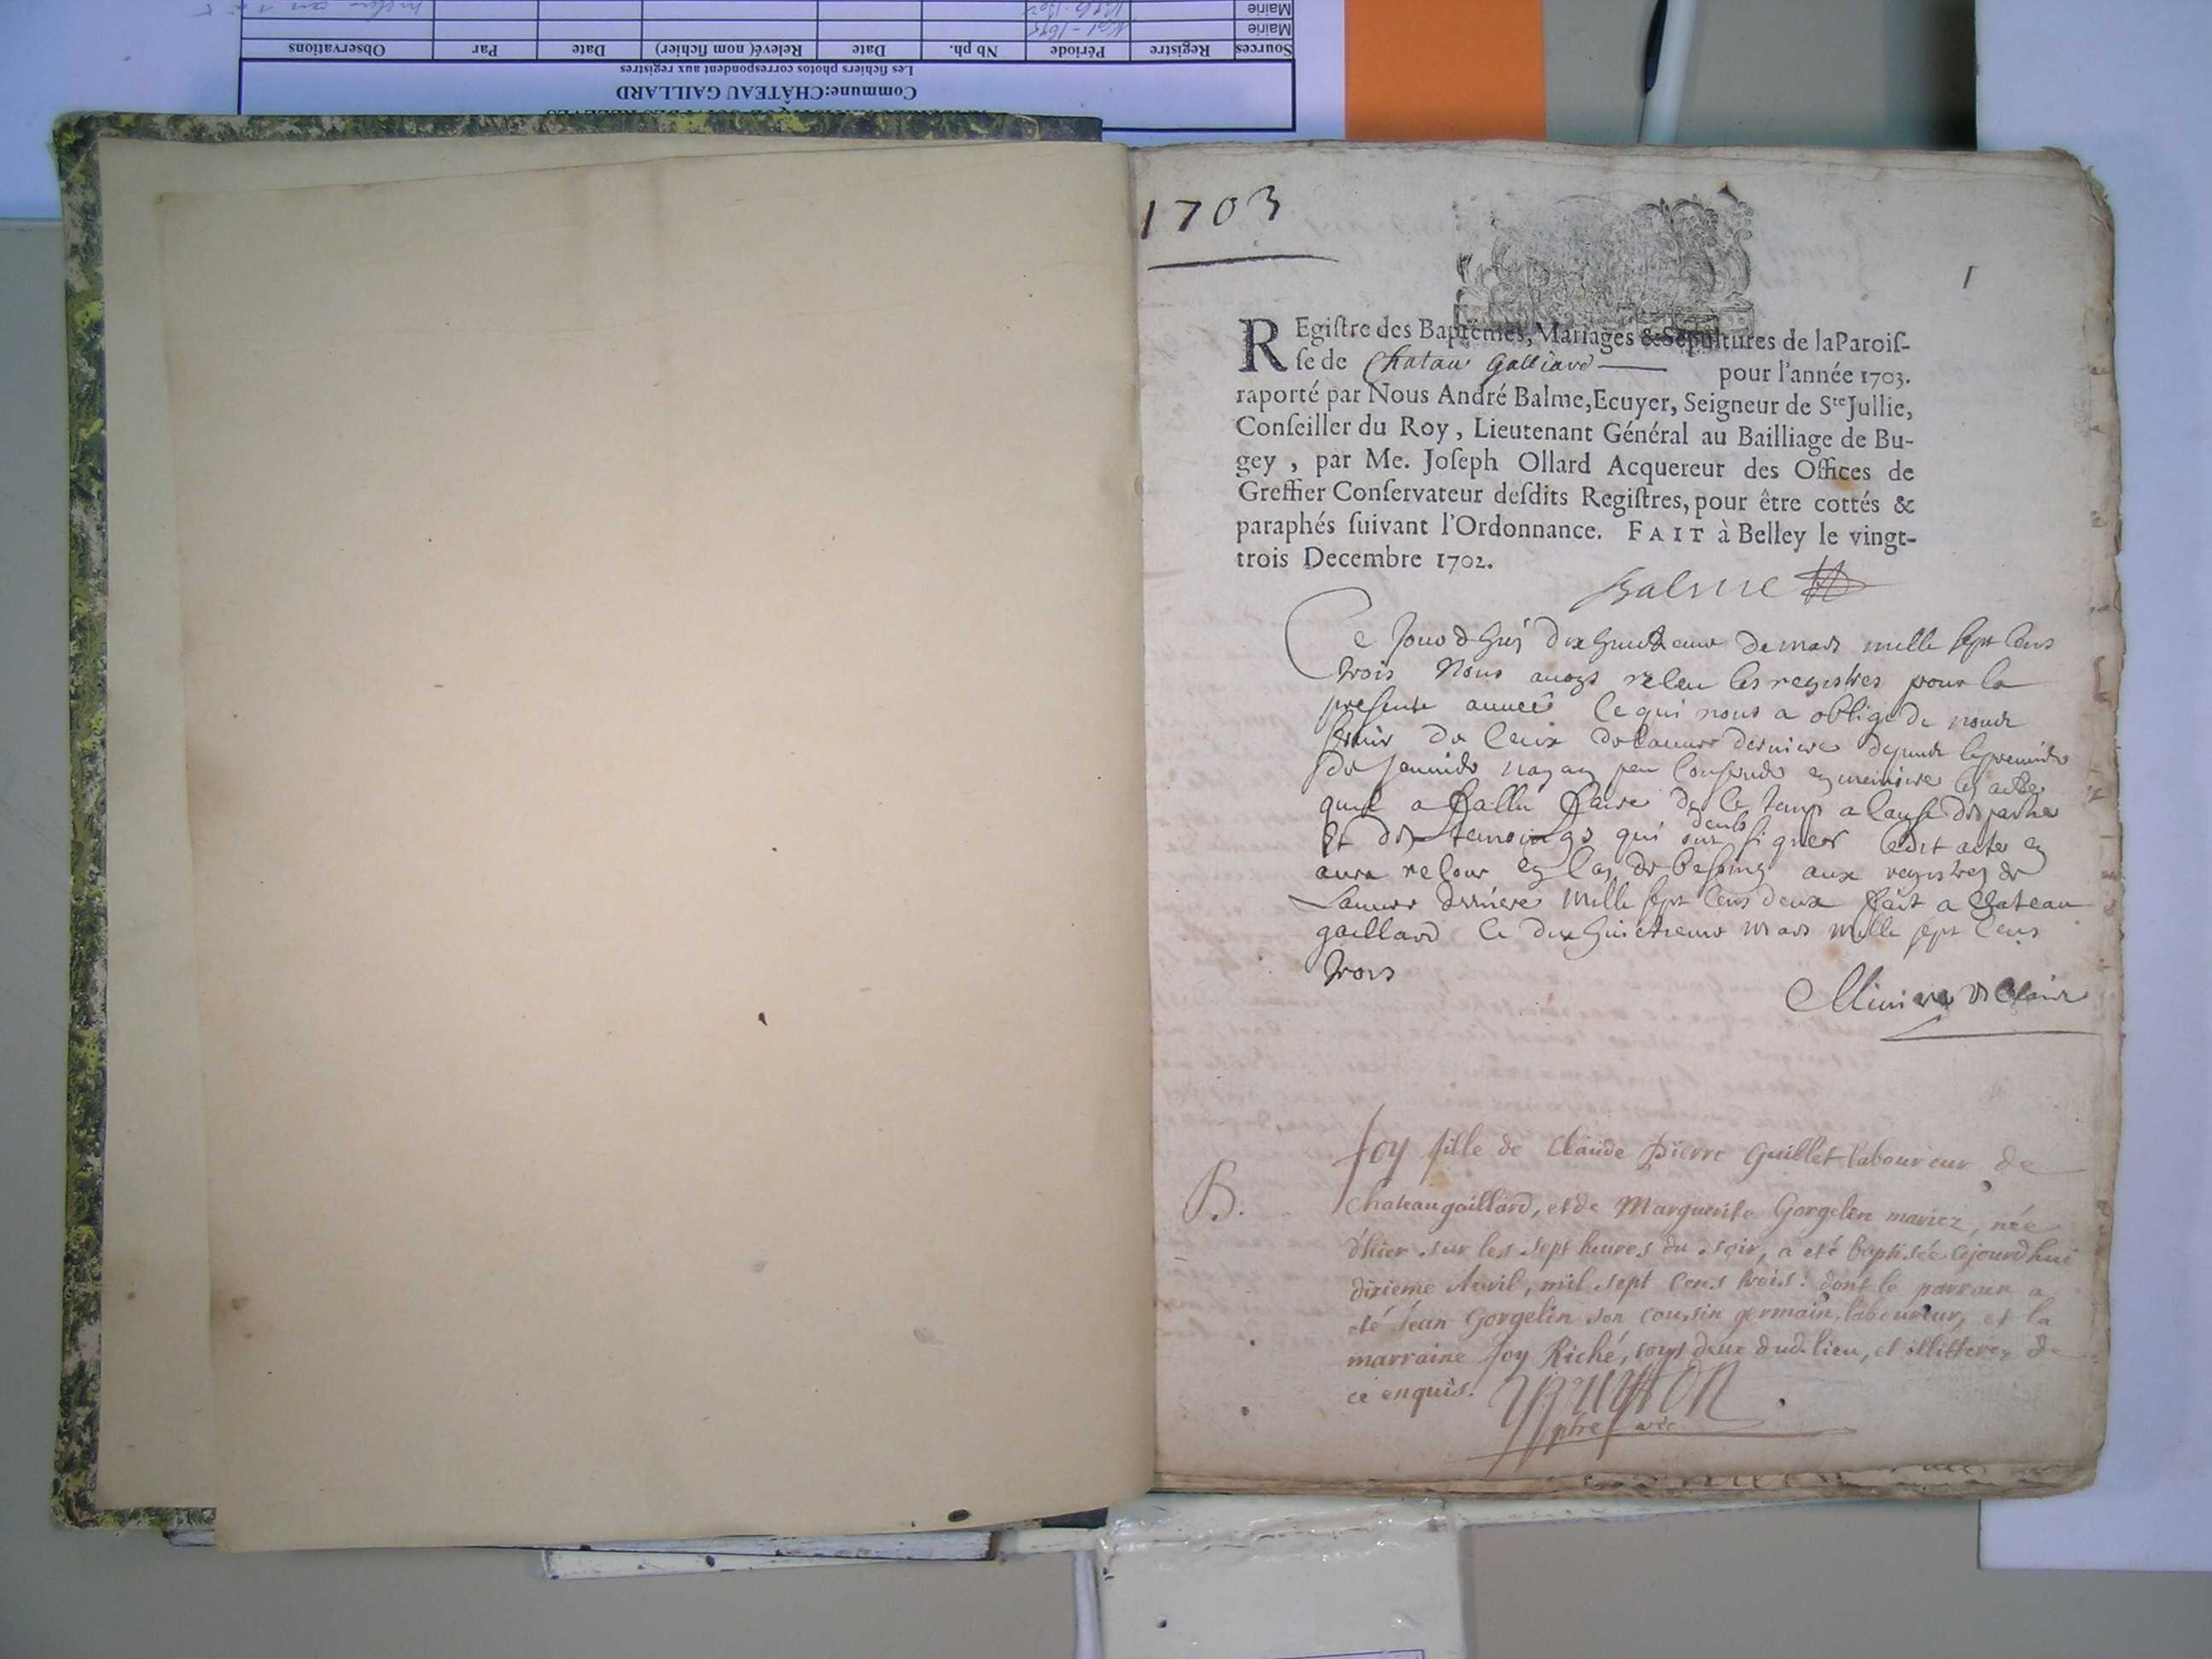 Mairie
Mairie
Sources Registre Période Nb ph. Date Relevé( nom fichier) Date Par Observations
Les fichiers photos correspondent aux registres
Commune:CHÂTEAU GAILLARD
1703
1
REgiſtre des Baptêmes, Mariages & Sepultures de laParoiſ-
ſe de Chatau Galliard pour l'année 1703.
raporté par Nous André Balme,Ecuyer, Seigneur de Ste Jullie,
Conſeiller du Roy, Lieutenant Général au Bailliage de Bu-
gey, par Me. Joſeph Ollard Acquereur des Offices de
Greffier Conſervateur deſdits Regiſtres, pour être cottés &
paraphés ſuivant l'Ordonnance. FAIT à Belley le vingt-
trois Decembre 1702.
Balme
Ce Jourdhuy dixhuictieme de mars mille sept cens
trois Nous avons releu les registres pour la
presente année ce qui nous a oblige de nous
servir de ceux de lannee derniere depuis le premier
de Janvier nayan peu
quil a fallu faire de ce temps a cause des parties
et des temoings qui ont signer ledit acte
aura recour en cas de besoing aux registres de
Lannee derniere mille sept cens deux fait a Chateau
gaillard ce dix huictieme mars mille sept cens
trois
B.
Foy fille de Claude Pierre Guillet laboureur de
Chateaugaillard, et de Marguerite Gorgelin mariez, née
d'hier sur les sept heures du soir, a eté baptisée cejourdhui
dixieme Avril, mil sept cens trois: dont le parrain a
eté Jean Gorgelin son cousin germain, laboureur, et la
marraine Foy Riché, tous deux dud. lieu, et illitterez de
ce enquis.
ptre